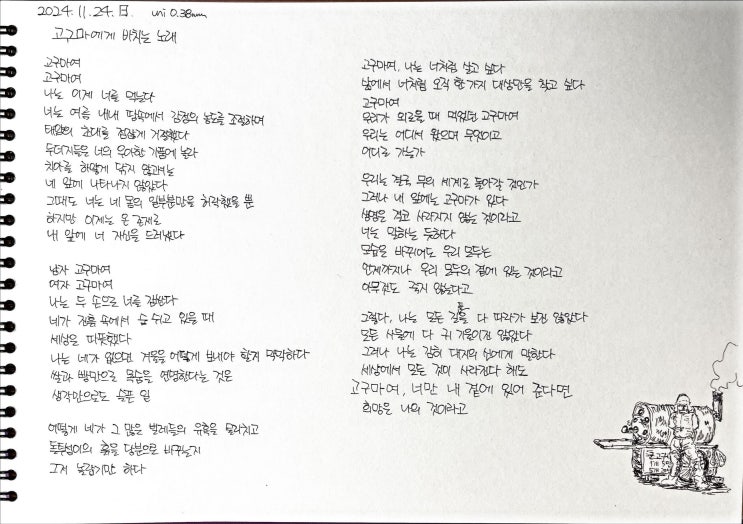 2024. 11. 24. 日. uni 0.38mm
고구마에게 바치는 노래
고구마여
고구마여
나는 이제 너를 먹는다
너는 여름 내내 땅속에서 감정의 농도를 조절하며
태양의 초대를 점잖게 거절했다
두더지들은 너의 우아한 기품에 놀라
치아를 하얗게 닦지 않고서는
네 앞에 나타나지 않았다
그때도 너는 네 몸의 일부분만을 허락했을 뿐
하지만 이제는 온 존재로
내 앞에 너 자신을 드러냈다
남자 고구마여
여자 고구마여
나는 두 손으로 너를 감싼다
네가 진흙 속에서 숨 쉬고 있을 때
세상은 따뜻했다
나는 네가 없으면 겨울을 어떻게 보내야 할지 막막하다
쌀과 빵만으로 목숨을 연명한다는 것은
생각만으로도 슬픈 일
어떻게 네가 그 많은 벌레들의 유혹을 물리치고
돌투성이의 흙을 당분으로 바꾸는지
그저 놀랍기만 하다
고구마여, 나는 너처럼 살고 싶다
삶에서 너처럼 오직 한 가지 대상만을 찾고 싶다
고구마여
우리가 외로울 때 먹었던 고구마여
우리는 어디서 왔으며 무엇이고
어디로 가는가
우리는 결국 무의 세계로 돌아갈 것인가
그러나 내 앞에는 고구마가 있다
생명은 결코 사라지지 않는 것이라고
너는 말하는 듯하다
모습은 바뀌어도 우리 모두는
언제까지나 우리 모두의 곁에 있는 것이라고
아무것도 죽지 않는다고
그렇다, 나는 모든 길들을 다 따라가 보진 않았다
모든 사물에 다 귀 기울이진 않았다
그러나 나는 감히 대지의 신에게 말한다
세상에서 모든 것이 사라진다 해도
고구마여, 너만 내 곁에 있어 준다면
희망은 나의 것이라고
군고구마